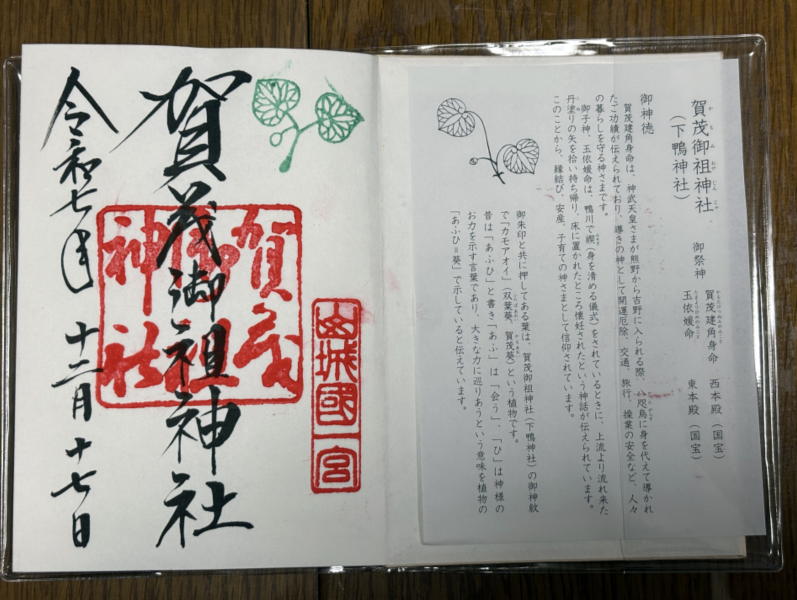 賀茂御祖神社
(下鴨神社)
御祭神 賀茂建角身命 西本殿(国宝)
玉依媛命 東本殿(国宝)
御神徳
賀茂建角身命は、神武天皇さまが熊野から吉野に入られる際、八咫烏に身を代えて導かれ
たご功績が伝えられており、導きの神として開運厄除、交通、旅行、操業の安全など、人々
の暮らしを守る神さまです。
御子神、玉依媛命は、鴨川で禊(身を清める儀式)をされているときに、上流より流れ来た
丹塗りの矢を拾い持ち帰り、床に置かれたところ懐妊されたという神話が伝えられています。
このことから、縁結び、安産、子育ての神さまとして信仰されています。
御朱印と共に押してある葉は、賀茂御祖神社(下鴨神社)の御神紋
で「カモアオイ」(双葉葵、賀茂葵)という植物です。
昔は「あふひ」と書き「あふ」は「会う」、「ひ」は神様の
お力を示す言葉であり、大きな力に巡りあうという意味を植物の
「あふひ=葵」で示していると伝えています。
山城國一宮
賀茂御祖神社
賀茂
御祖
神社
令和七年 十二月 十七日